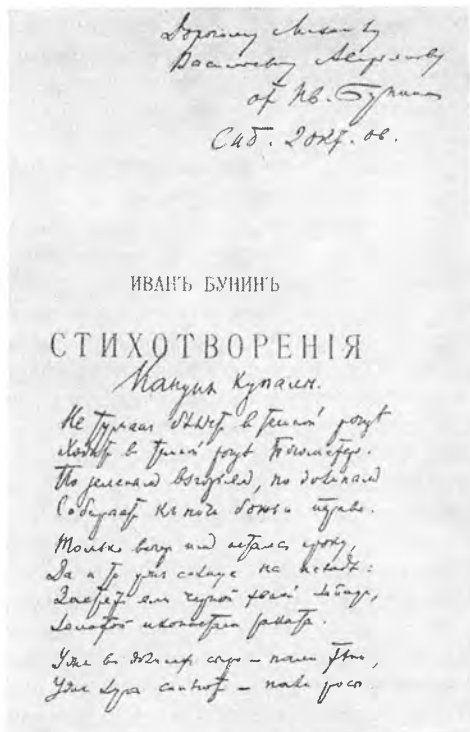 Дорогому Михаилу
Васильевичу Аверьянову
от Ив. Бунина
Спб. 2 окт.
ИВАНЪ БУНИНЪ
СТИХОТВОРЕНІЯ
Канун Купалы.
Не туман бѣлѣет в темной рощѣ
Ходит в темной рощѣ Богоматерь.
По зеленым взгорьям, по долинам
Собирает къ ночи божьи травы.
Только вечер им остался сроку,
Да и то уж солнце на исходѣ:
Застят ели черной хвоей запад,
Золотой иконостас заката.
Уж в долинах сыро – пали тѣни,
Уж луга синѣют – пали росы